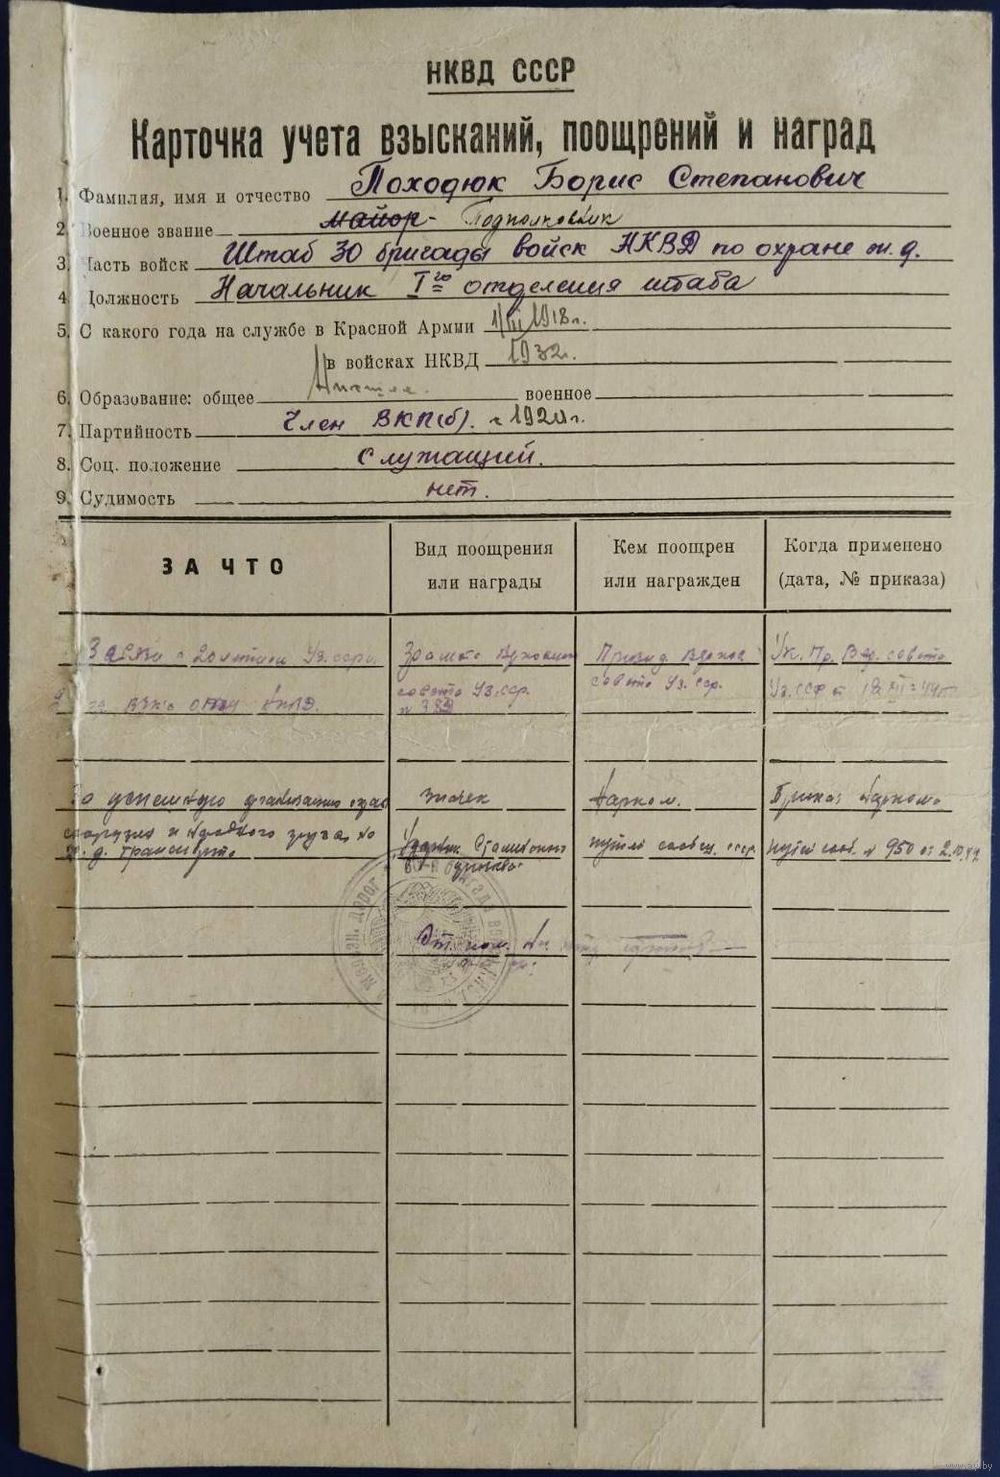 НКВД СССР
Карточка учета взысканий, поощрений и наград
1. Фамилия, имя и отчество Походюк Борис Степанович
2. Военное звание майор - Подполковник
3. Часть войск Штаб 30 бригады войск НКВД по охране ж.д.
4. Должность Начальник Iго отделения штаба
5. С какого года на службе в Красной Армии 1/III 1918г.
в войсках НКВД 1932г.
6. Образование: общее военное
7. Партийность Член ВКП(б). с 1920г.
8. Соц. положение Служащий.
9. Судимость нет.
ЗА ЧТО
Вид поощрения или награды
Кем поощрен или награжден
Когда применено (дата, № приказа)
В связи с 20 летием Уз. сср.
Грамота Верховного
Презид. Верхов
Ук. Пр. Вер. совета
совета Уз. сср.
совета Уз. сср.
Уз. ССР
За успешную
значек
Нарком.
Приказ Наркома
груза по
ж. д. транспорта
Сталинского
путей сообщ. ссср
путей сооб. № 950 от 2.10.44
призыва